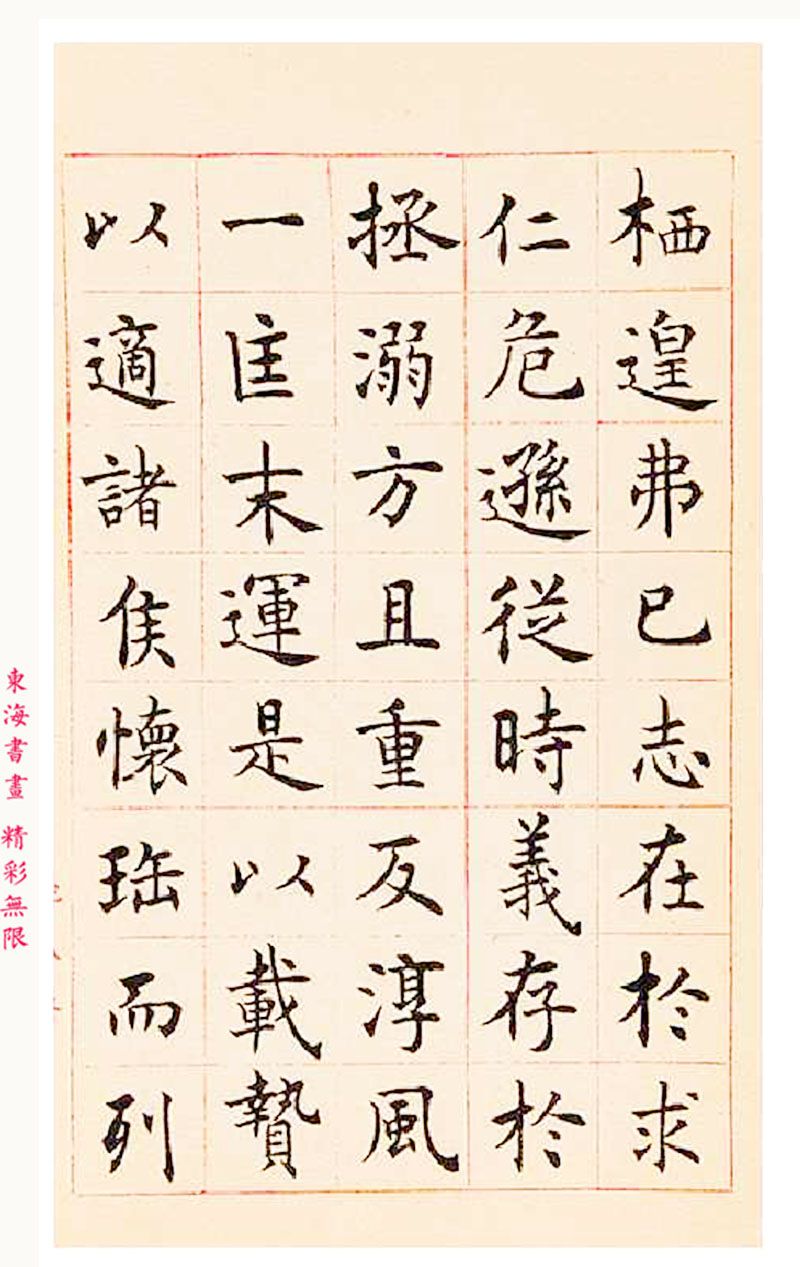 栖遑弗已志在於求
仁危遜從時義存於
拯溺方且重反淳風
一匡末運是以載贄
以適諸侯懷珤而列
東海書畫 精彩無限